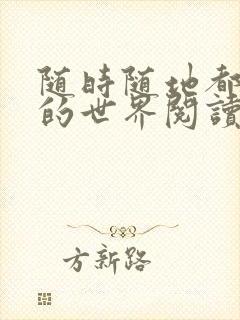 随時随地都
的世界閱讀
方新路